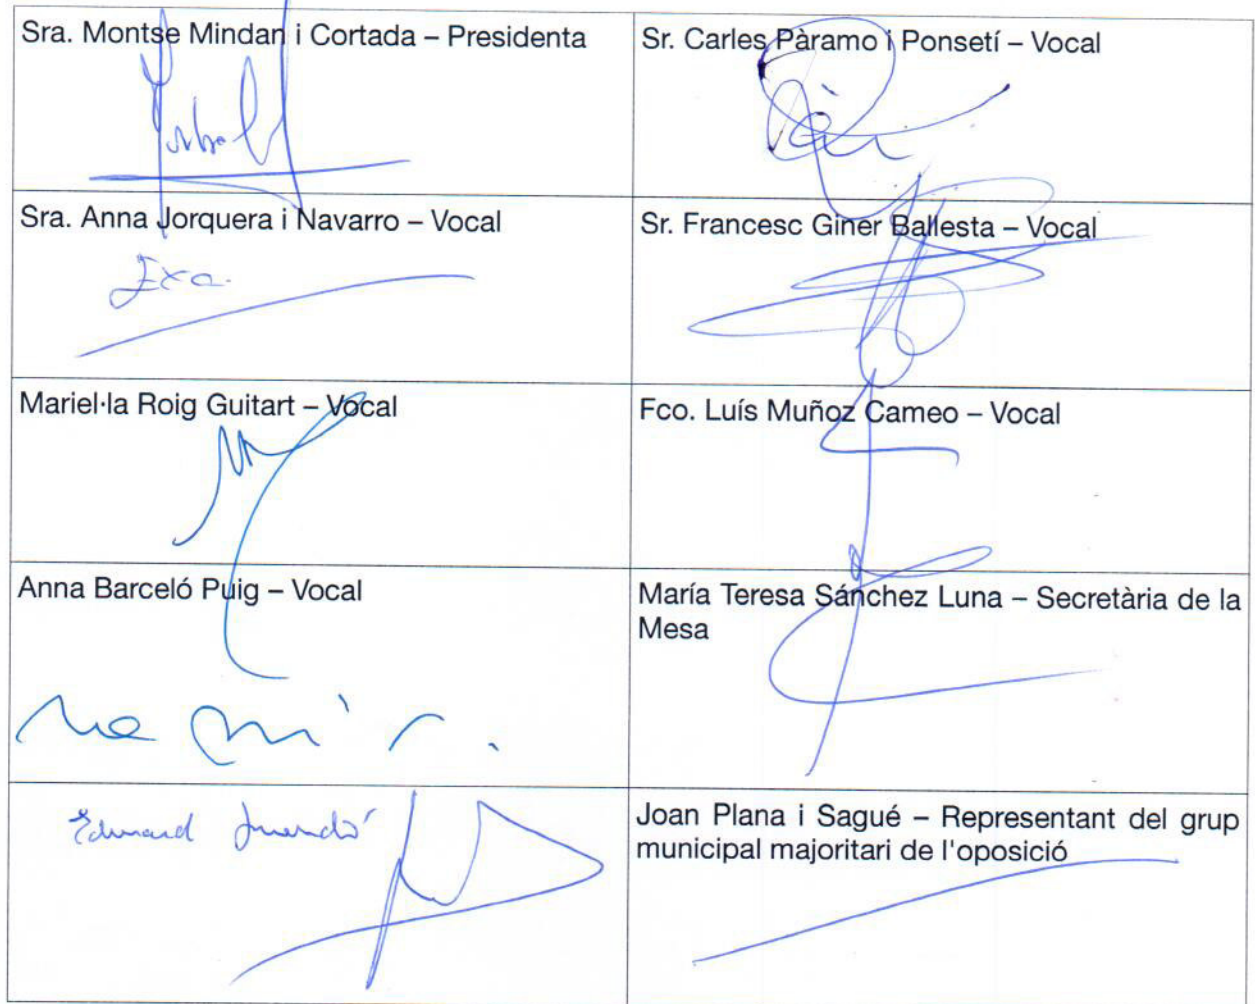 Sra. Montse Mindan i Cortada – Presidenta
Sr. Carles Pàramo i Ponsetí – Vocal
Sra. Anna Jorquera i Navarro – Vocal
Sr. Francesc Giner Ballesta – Vocal
Mariel·la Roig Guitart – Vocal
Fco. Luís Muñoz Cameo – Vocal
Anna Barceló Puig – Vocal
María Teresa Sánchez Luna – Secretària de la
Mesa
Eduard
Joan Plana i Sagué – Representant del grup
municipal majoritari de l'oposició